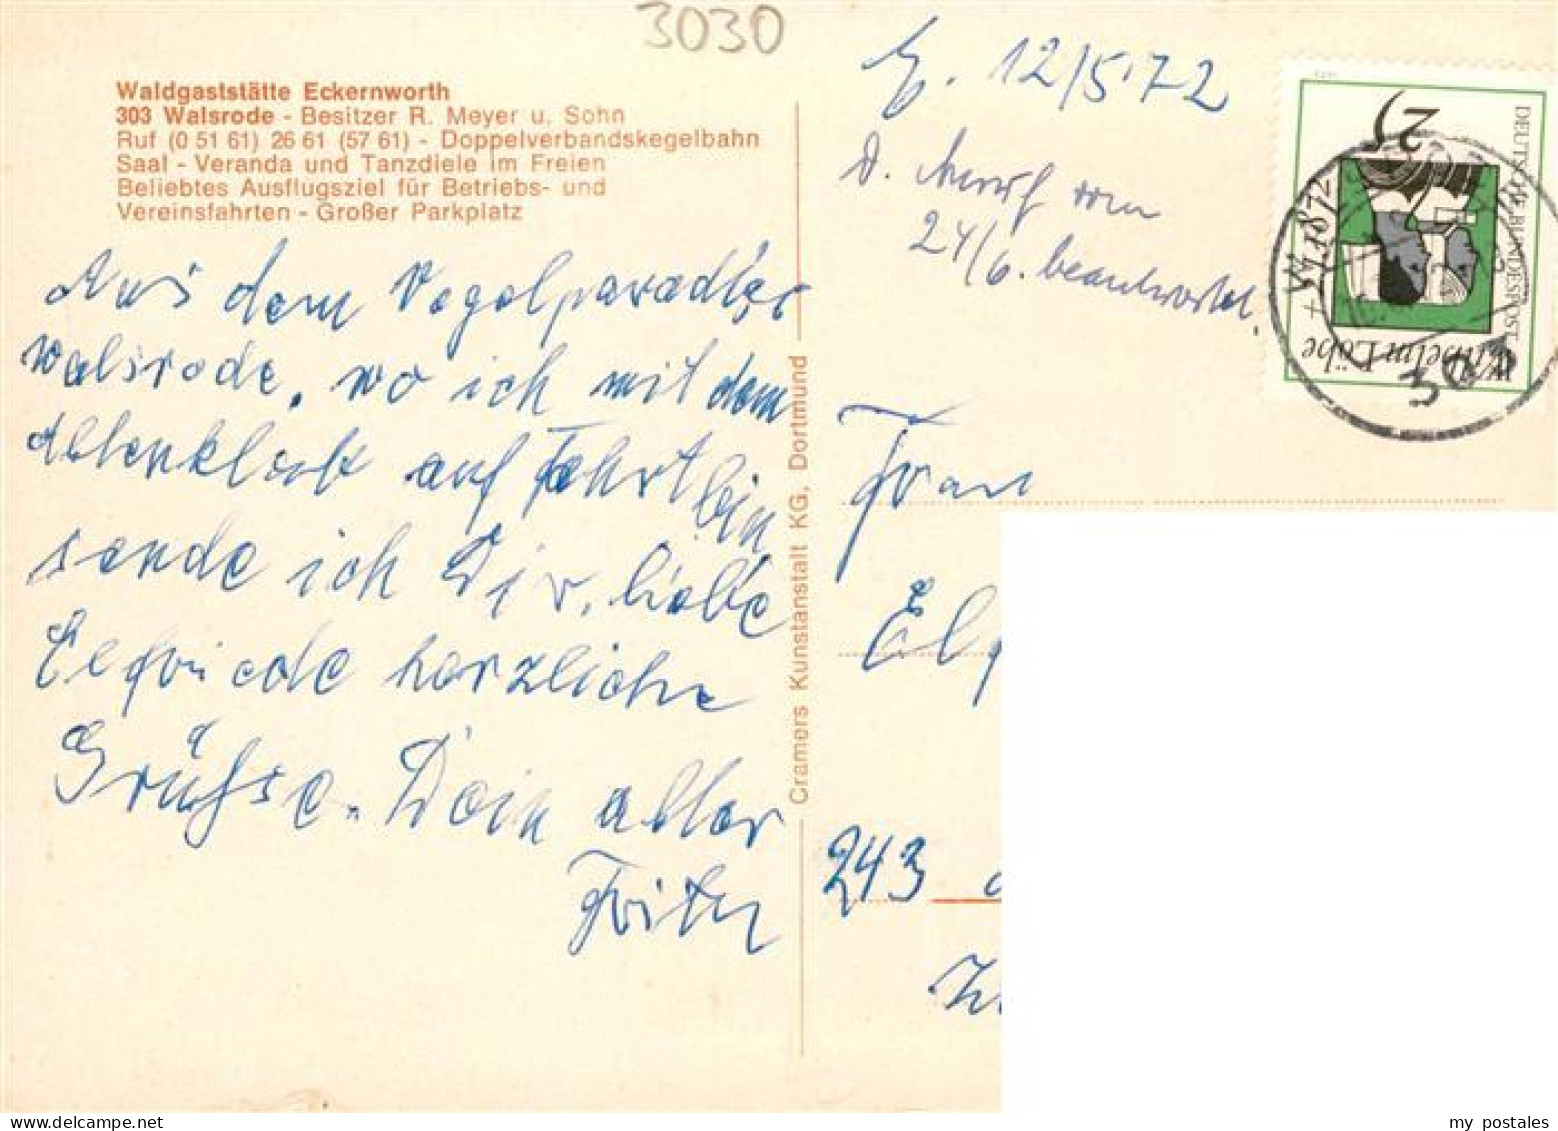 3030
Waldgaststätte Eckernworth
303 Walsrode - Besitzer R. Meyer u. Sohn
Ruf (0 51 61) 26 61 (57 61) - Doppelverbandskegelbahn
Saal - Veranda und Tanzdiele im Freien
Beliebtes Ausflugsziel für Betriebs- und
Vereinsfahrten - Großer Parkplatz
Aus dem Vogelparadies
Walsrode, wo ich mit dem
Altenklub auf Fahrt bin
sende ich Dir, liebe
Elfriede herzliche
Grüsse. Dein alter
Fritz
Cramers Kunstanstalt KG, Dortmund
E. 12/5 72
d. Anruf vom
24/6. beantwortet.
DEUTSCHE BUNDESPOST
25
Wilhelm Löhe
1872
303
Frau
Elf
243